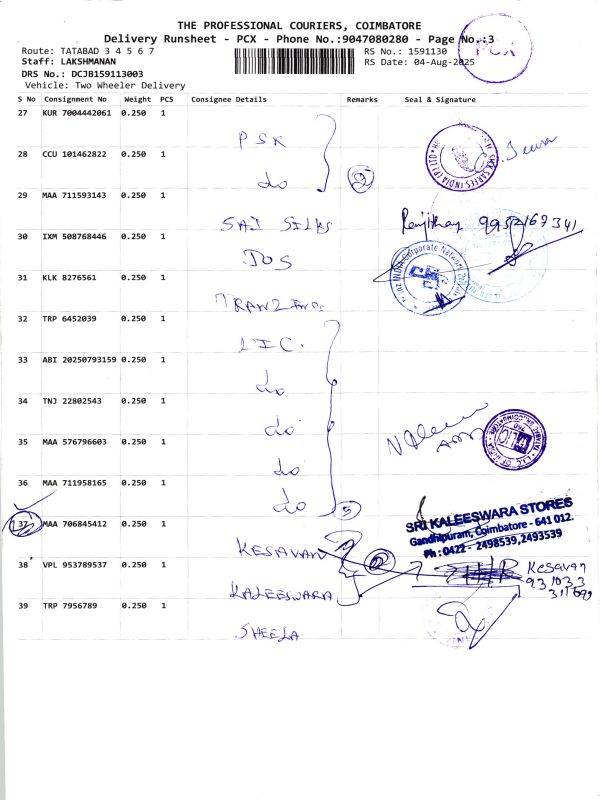 THE PROFESSIONAL COURIERS, COIMBATORE
Delivery Runsheet - PCX - Phone No.:9047080280 - Page No.:3
PCX
Route: TATABAD 3 4 5 6 7
RS No.: 1591130
Staff: LAKSHMANAN
RS Date: 04-Aug-2025
DRS No.: DCJB159113003
Vehicle: Two Wheeler Delivery
S No Consignment No Weight PCS Consignee Details Remarks Seal & Signature
27 KUR 7004442061 0.250 1 PSK
28 CCU 101462822 0.250 1 do 2
29 MAA 711593143 0.250 1 SAI SILKS
30 IXM 508768446 0.250 1 JOS
31 KLK 8276561 0.250 1
32 TRP 6452039 0.250 1 LIC.
33 ABI 20250793159 0.250 1 do
34 TNJ 22802543 0.250 1 do
35 MAA 576796603 0.250 1 do
36 MAA 711958165 0.250 1 do 5
37 MAA 706845412 0.250 1 KESAVAN
SRI KALEESWARA STORES
Gandhipuram, Coimbatore - 641 012.
Ph : 0422 - 2498539, 2493539
38 VPL 953789537 0.250 1 KALEESWARA 2
Kesavan
39 TRP 7956789 0.250 1 SHEELA